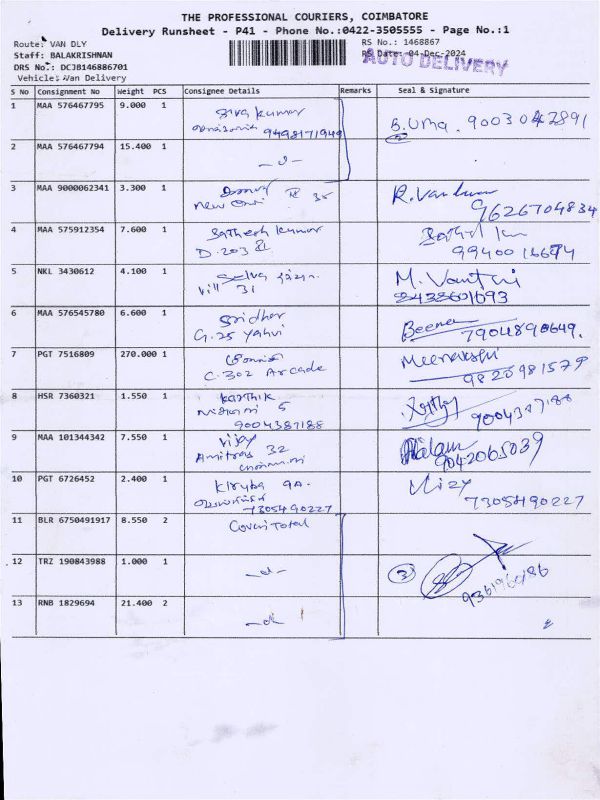 THE PROFESSIONAL COURIERS, COIMBATORE
Delivery Runsheet - P41 - Phone No.:0422-3505555 - Page No.:1
Route: VAN DLY
RS No.: 1468867
Staff: BALAKRISHNAN
RS Date: 04-Dec-2024
AUTO DELIVERY
DRS No.: DCJB146886701
Vehicle: Van Delivery
S No Consignment No Weight PCS Consignee Details Remarks Seal & Signature
1 MAA 576467795 9.000 1 Siva kumar
9498171949 B. Uma. 9003042891
2 MAA 576467794 15.400 1
3 MAA 9000062341 3.300 1 35 R. Vandana
New 9626704834
4 MAA 575912354 7.600 1 Sathesh kumar
D. 203 9940016674
5 NKL 3430612 4.100 1 Selva M. Vanthi
Vill 31 8433601693
6 MAA 576545780 6.600 1 Sridhar Beena
G. 25 7904890649.
7 PGT 7516809 270.000 1 Meenakshi
C. 302 Arcade 9820981579
8 HSR 7360321 1.550 1 Karthik
5 9004387188
9004387188
9 MAA 101344342 7.550 1 Vijay
Amitras 32 9042065039
10 PGT 6726452 2.400 1 Kiruba 9A.
7305490227 7305490227
11 BLR 6750491917 8.550 2 Total
12 TRZ 190843988 1.000 1
3
13 RNB 1829694 21.400 2